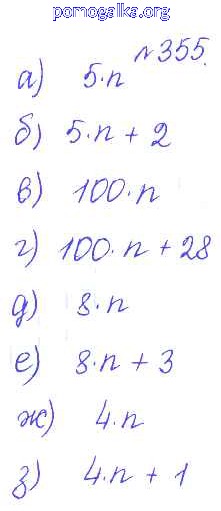 pomogalka.org
№355.
а) 5·n
б) 5·n + 2
в) 100·n
г) 100·n + 28
д) 8·n
е) 8·n + 3
ж) 4·n
з) 4·n + 1